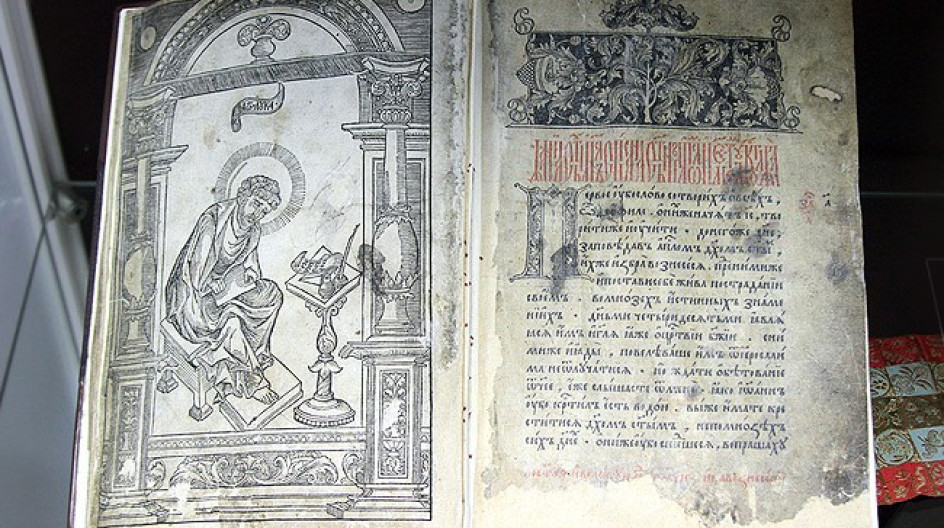 Первое ѹбо слово сотворихъ ѡ всѣхъ,
ѡ ѳеѡфиле. ѡ нихже начатъ іс, тво
рити же и ѹчити. до негоже дне,
заповѣдавъ апⷭлѡмъ дх҃омъ ст҃ы,
ихже избра вознесесѧ. пред ними же
и постави себе жива по страданїи
своемъ. во мнозехъ истинныхъ знаме
нїихъ. деньми четыридесѧтьми ꙗвлѧ
ꙗсѧ имъ и гл҃ѧ ꙗже ѡ цр҃ствїи бж҃їи. с ни
ми же ꙗды, повелѣваше имъ ѿ іерѹсали
ма не ѿлѹчатисѧ. но ждати ѡбѣтованїе
ѿчее, еже слышасте ѿ мене. ꙗко іѡаннъ
ѹбо крт҃илъ есть водою. вы же имате кре
ститисѧ дх҃омъ ст҃ымъ, не по мнозѣхъ
сихъ дне҃. ѡни же ѹбо сшедшесѧ, вопрашахѹ